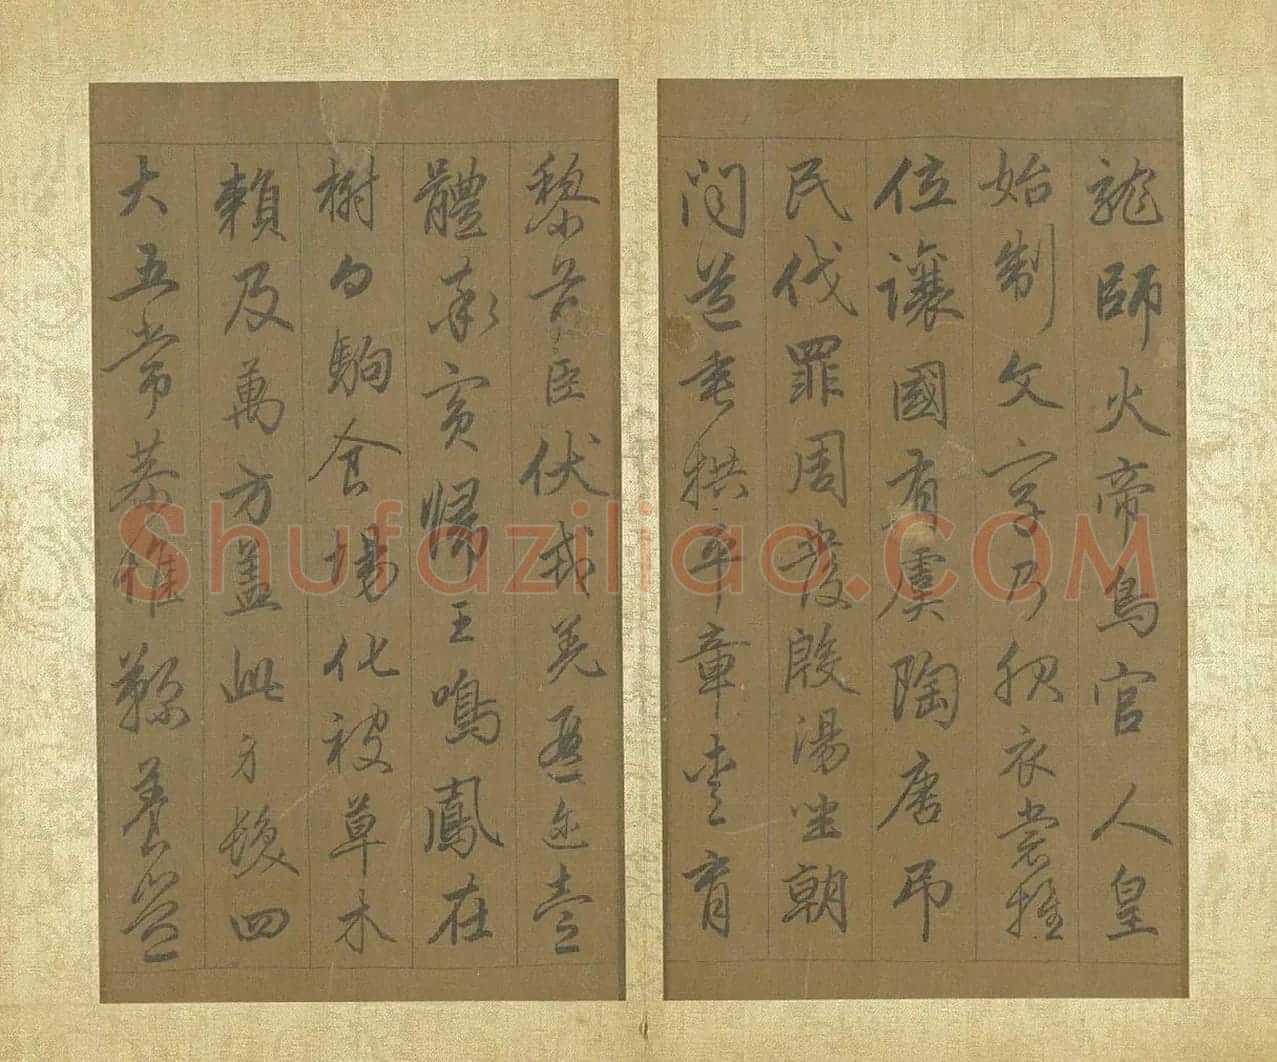 龍師火帝鳥官人皇
始制文字乃服衣裳推
位讓國有虞陶唐弔
民伐罪周發殷湯坐朝
問道垂拱平章愛育
黎首臣伏戎羌遐迩壹
體率賓歸王鳴鳳在
樹白駒食場化被草木
賴及萬方蓋此方髮四
大五常恭惟鞠養豈
Shufaziliao.COM